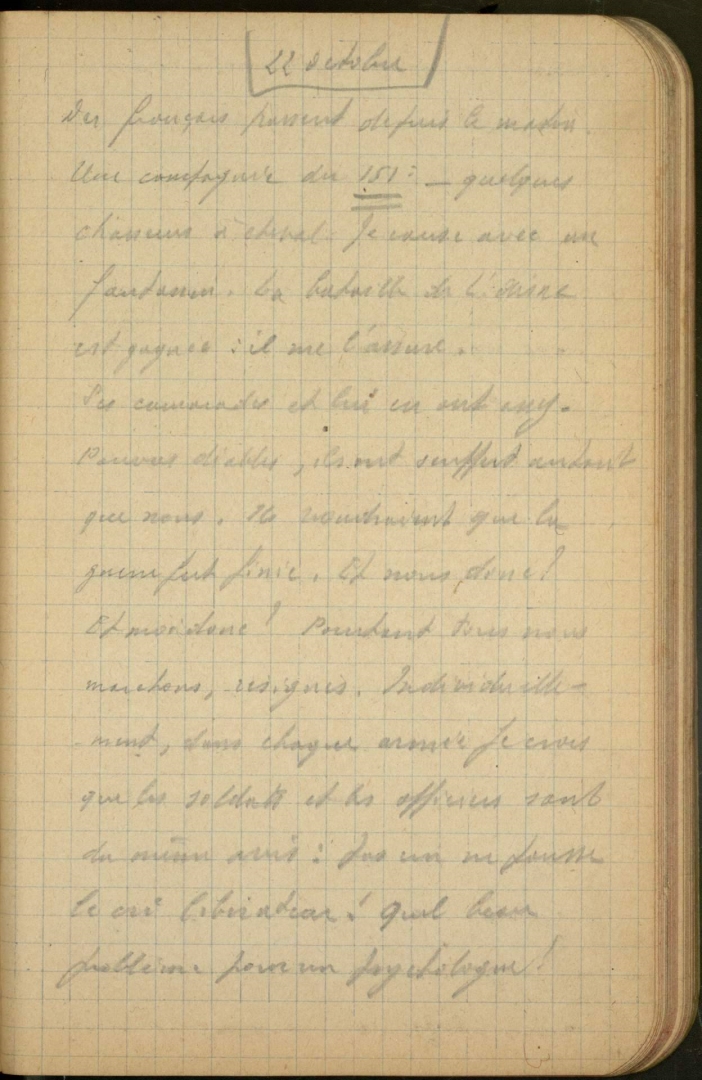 22 octobre
Des français passent depuis le matin.
Une compagnie du 151e — quelques
chasseurs à cheval. Je cause avec un
fantassin. La bataille de l'Aisne
est gagnée : il me l'assure.
Ses camarades et lui en ont assez.
Pauvres diables, ils ont souffert autant
que nous. Ils voudraient que la
guerre fut finie. Et nous, donc !
Et moi donc ! Pourtant tous nous
marchons, résignés. Individuelle-
-ment, dans chaque armée je crois
que les soldats et les officiers sont
du même avis : pas un ne pousse
le cri libérateur ! Quel beau
problème pour un psychologue !